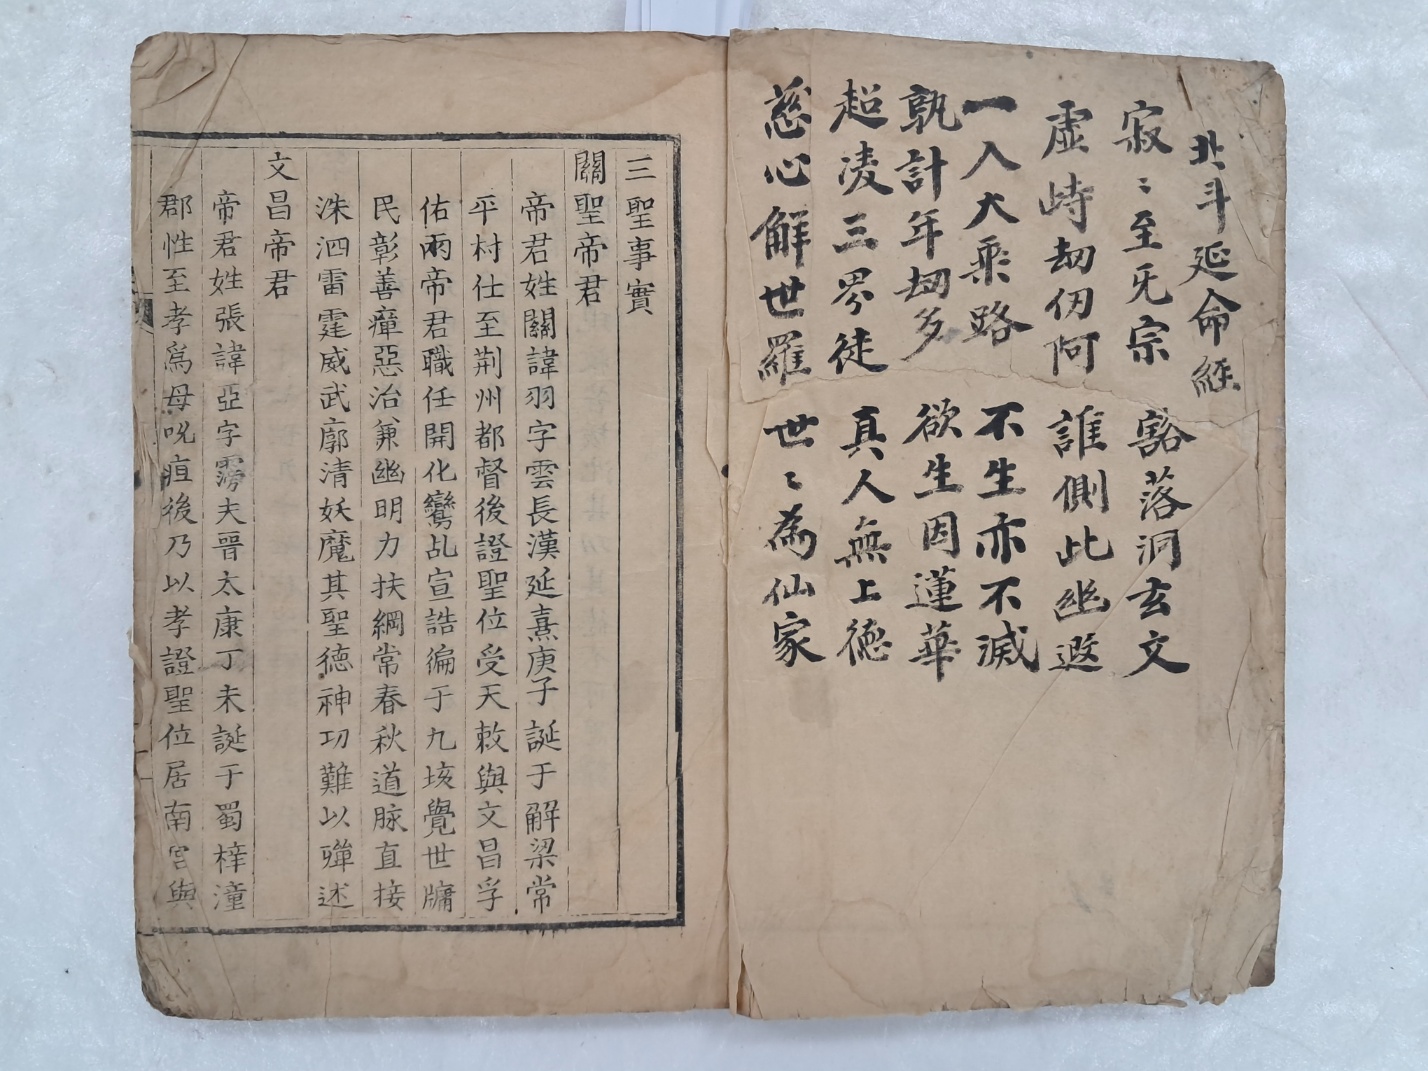 北斗延命經
寂〻至旡宗 豁落洞玄文
虛峙劫仞阿 誰側此幽遐
一入大乘路 不生亦不滅
孰計年刼多 欲生因蓮華
超凌三界徒 真人無上德
慈心解世羅 世〻為仙家
三聖事實
關聖帝君
帝君姓關諱羽字雲長漢延熹庚子誕于解梁常
平村仕至荆州都督後證聖位受天敕與文昌孚
佑兩帝君職任開化鸞乩宣誥徧于九垓覺世牖
民彰善癉惡治兼幽明力扶綱常春秋道脉直接
洙泗雷霆威武廓清妖魔其聖德神功難以殫述
文昌帝君
帝君姓張諱亞字霶夫晉太康丁未誕于蜀梓潼
郡性至孝爲母吮疽後乃以孝證聖位居南宫與